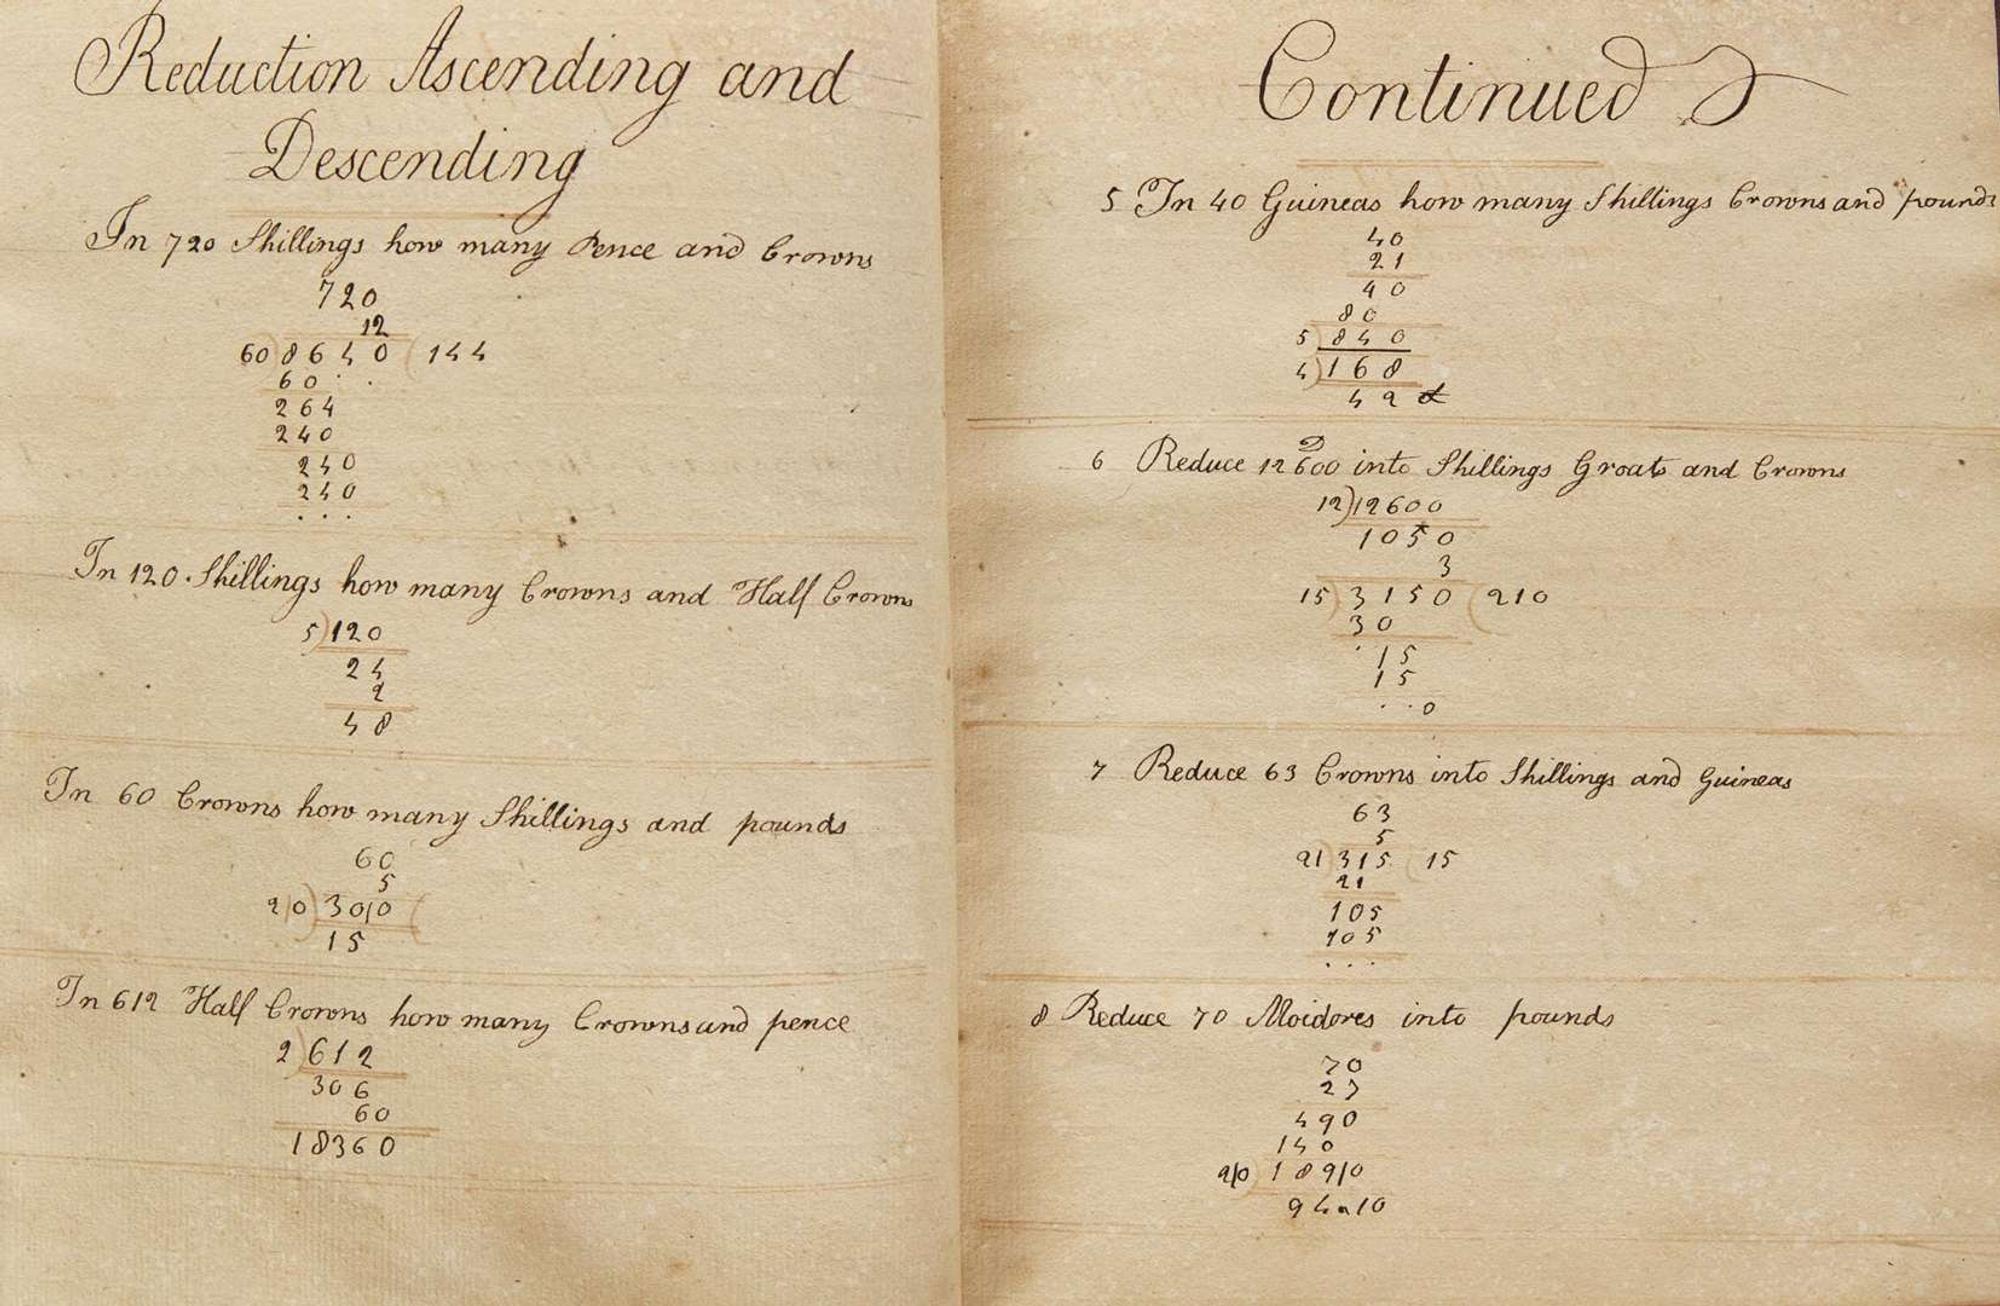 Reduction Ascending and
Descending
In 720 Shillings how many Pence and Crowns
720
12
60) 8640 (144
60 . .
264
240
240
240
. . .
In 120. Shillings how many Crowns and Half Crowns
5)120
24
2
48
In 60 Crowns how many Shillings and pounds
60
5
2|0) 30|0 (
15
In 612 Half Crowns how many Crowns and pence
2)612
306
60
18360
Continued
5 In 40 Guineas how many Shillings Crowns and pounds
40
21
40
80
5)840
4)168
42 £
D
6 Reduce 12600 into Shillings Groats and Crowns
12)12600
1050
3
15) 3150 (210
30
. 15
15
. . 0
7 Reduce 63 Crowns into Shillings and Guineas
63
5
21) 315 (15
21
105
105
. . .
8 Reduce 70 Moidores into pounds
70
27
490
140
2|0) 189|0
94 . 10